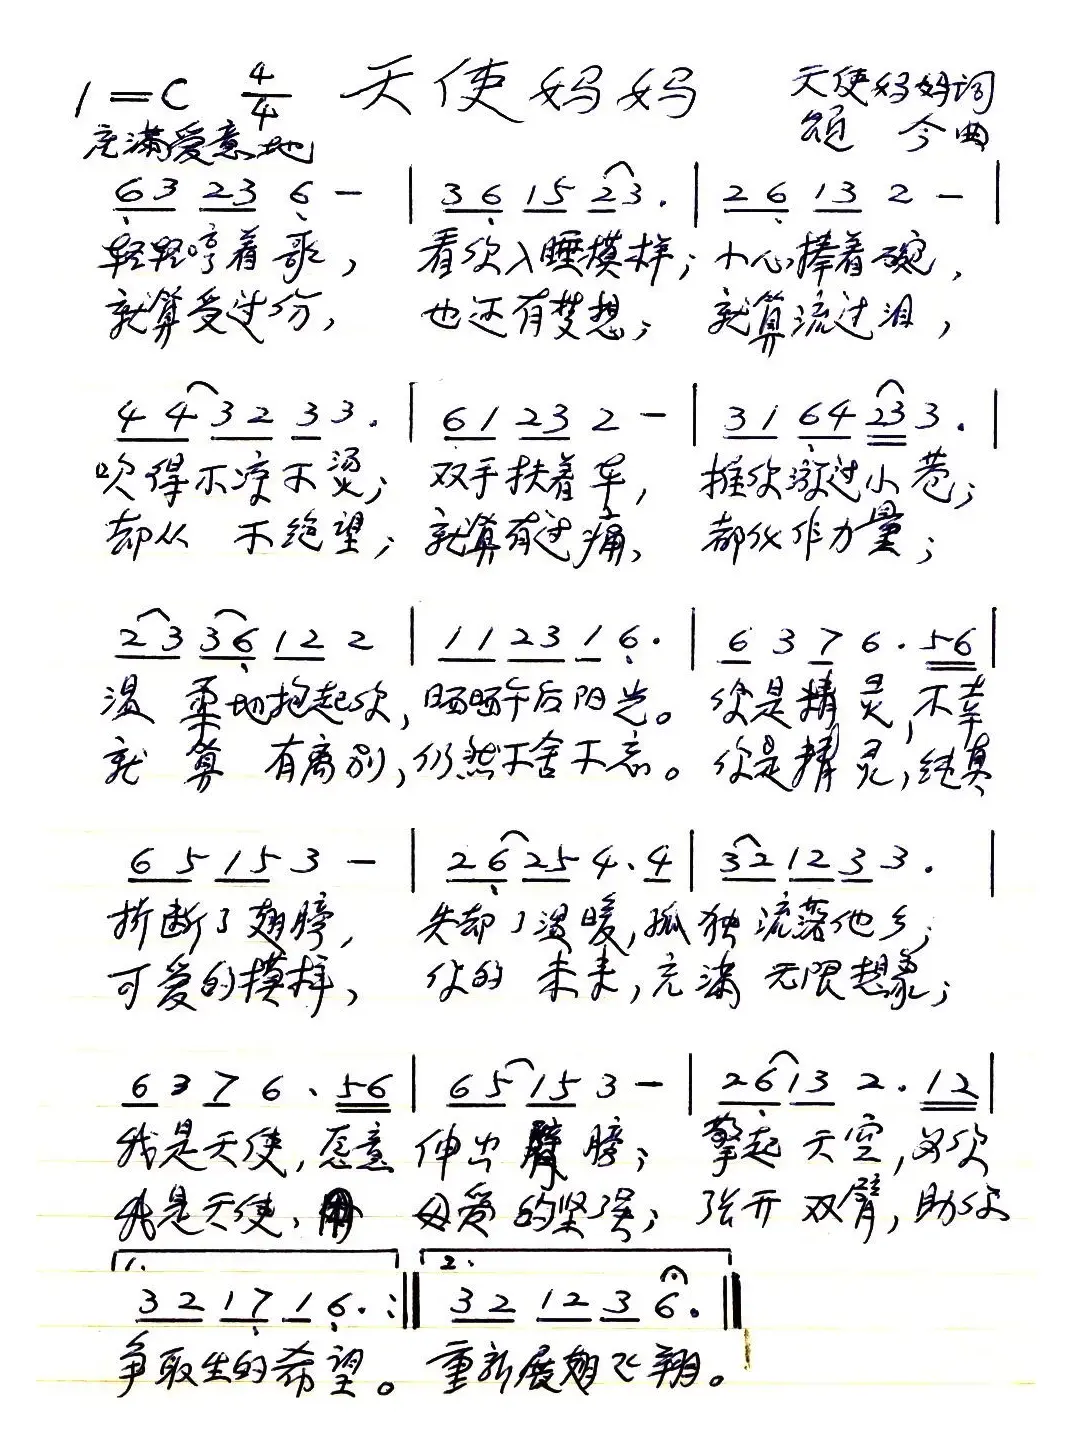 1=C 4/4 天使妈妈 天使妈妈词
充满爱意地 颂今曲
63 23 6 — | 36 15 23. | 26 13 2 — |
轻轻哼着歌， 看你入睡模样； 小心捧着碗，
就算受过伤， 也还有梦想； 就算流过泪，
44 32 33. | 61 23 2 — | 31 64 23 3. |
吹得不凉不烫； 双手扶着车， 推你游过小巷；
却从 不绝望； 就算有过痛， 都化作力量；
23 36 12 2 | 11 23 1 6. | 6 3 7 6. 56 |
温 柔地抱起你， 晒晒午后阳光。 你是精灵，不幸
就 算 有离别， 仍然不舍不忘。 你是精灵，纯真
65 15 3 — | 26 25 4. 4 | 32 12 3 3. |
折断了翅膀， 失却了温暖，孤独流落他乡；
可爱的模样， 你的 未来，充满 无限想象；
6 3 7 6. 56 | 65 15 3 — | 26 13 2. 12 |
我是天使，愿意 伸出臂膀； 擎起 天空，为你
我是天使，用 母爱的坚强； 张开双臂，助你
1. 2.
32 17 1 6. :‖ 32 12 3 6. ‖
争取生的希望。 重新展翅飞翔。